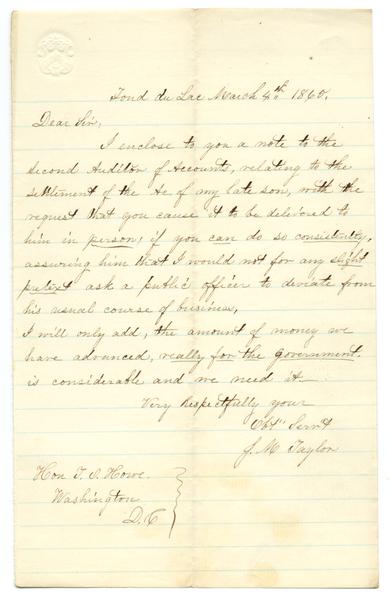 Fond du Lac March 4th 1865.
Dear Sir,
I enclose to you a note to the
Second Auditor of Accounts, relating to the
settlement of the Ac of my late son, with the
request that you cause it to be delivered to
him in person, if you can do so consistently,
assuring him that I would not for any slight
pretext ask a public officer to deviate from
his usual course of business,
I will only add, the amount of money we
have advanced, really for the Government.
is considerable and we need it.
Very Respectfully your
Obt" Servt
J. M Taylor
Hon T. O. Howe.
Washington
D. C